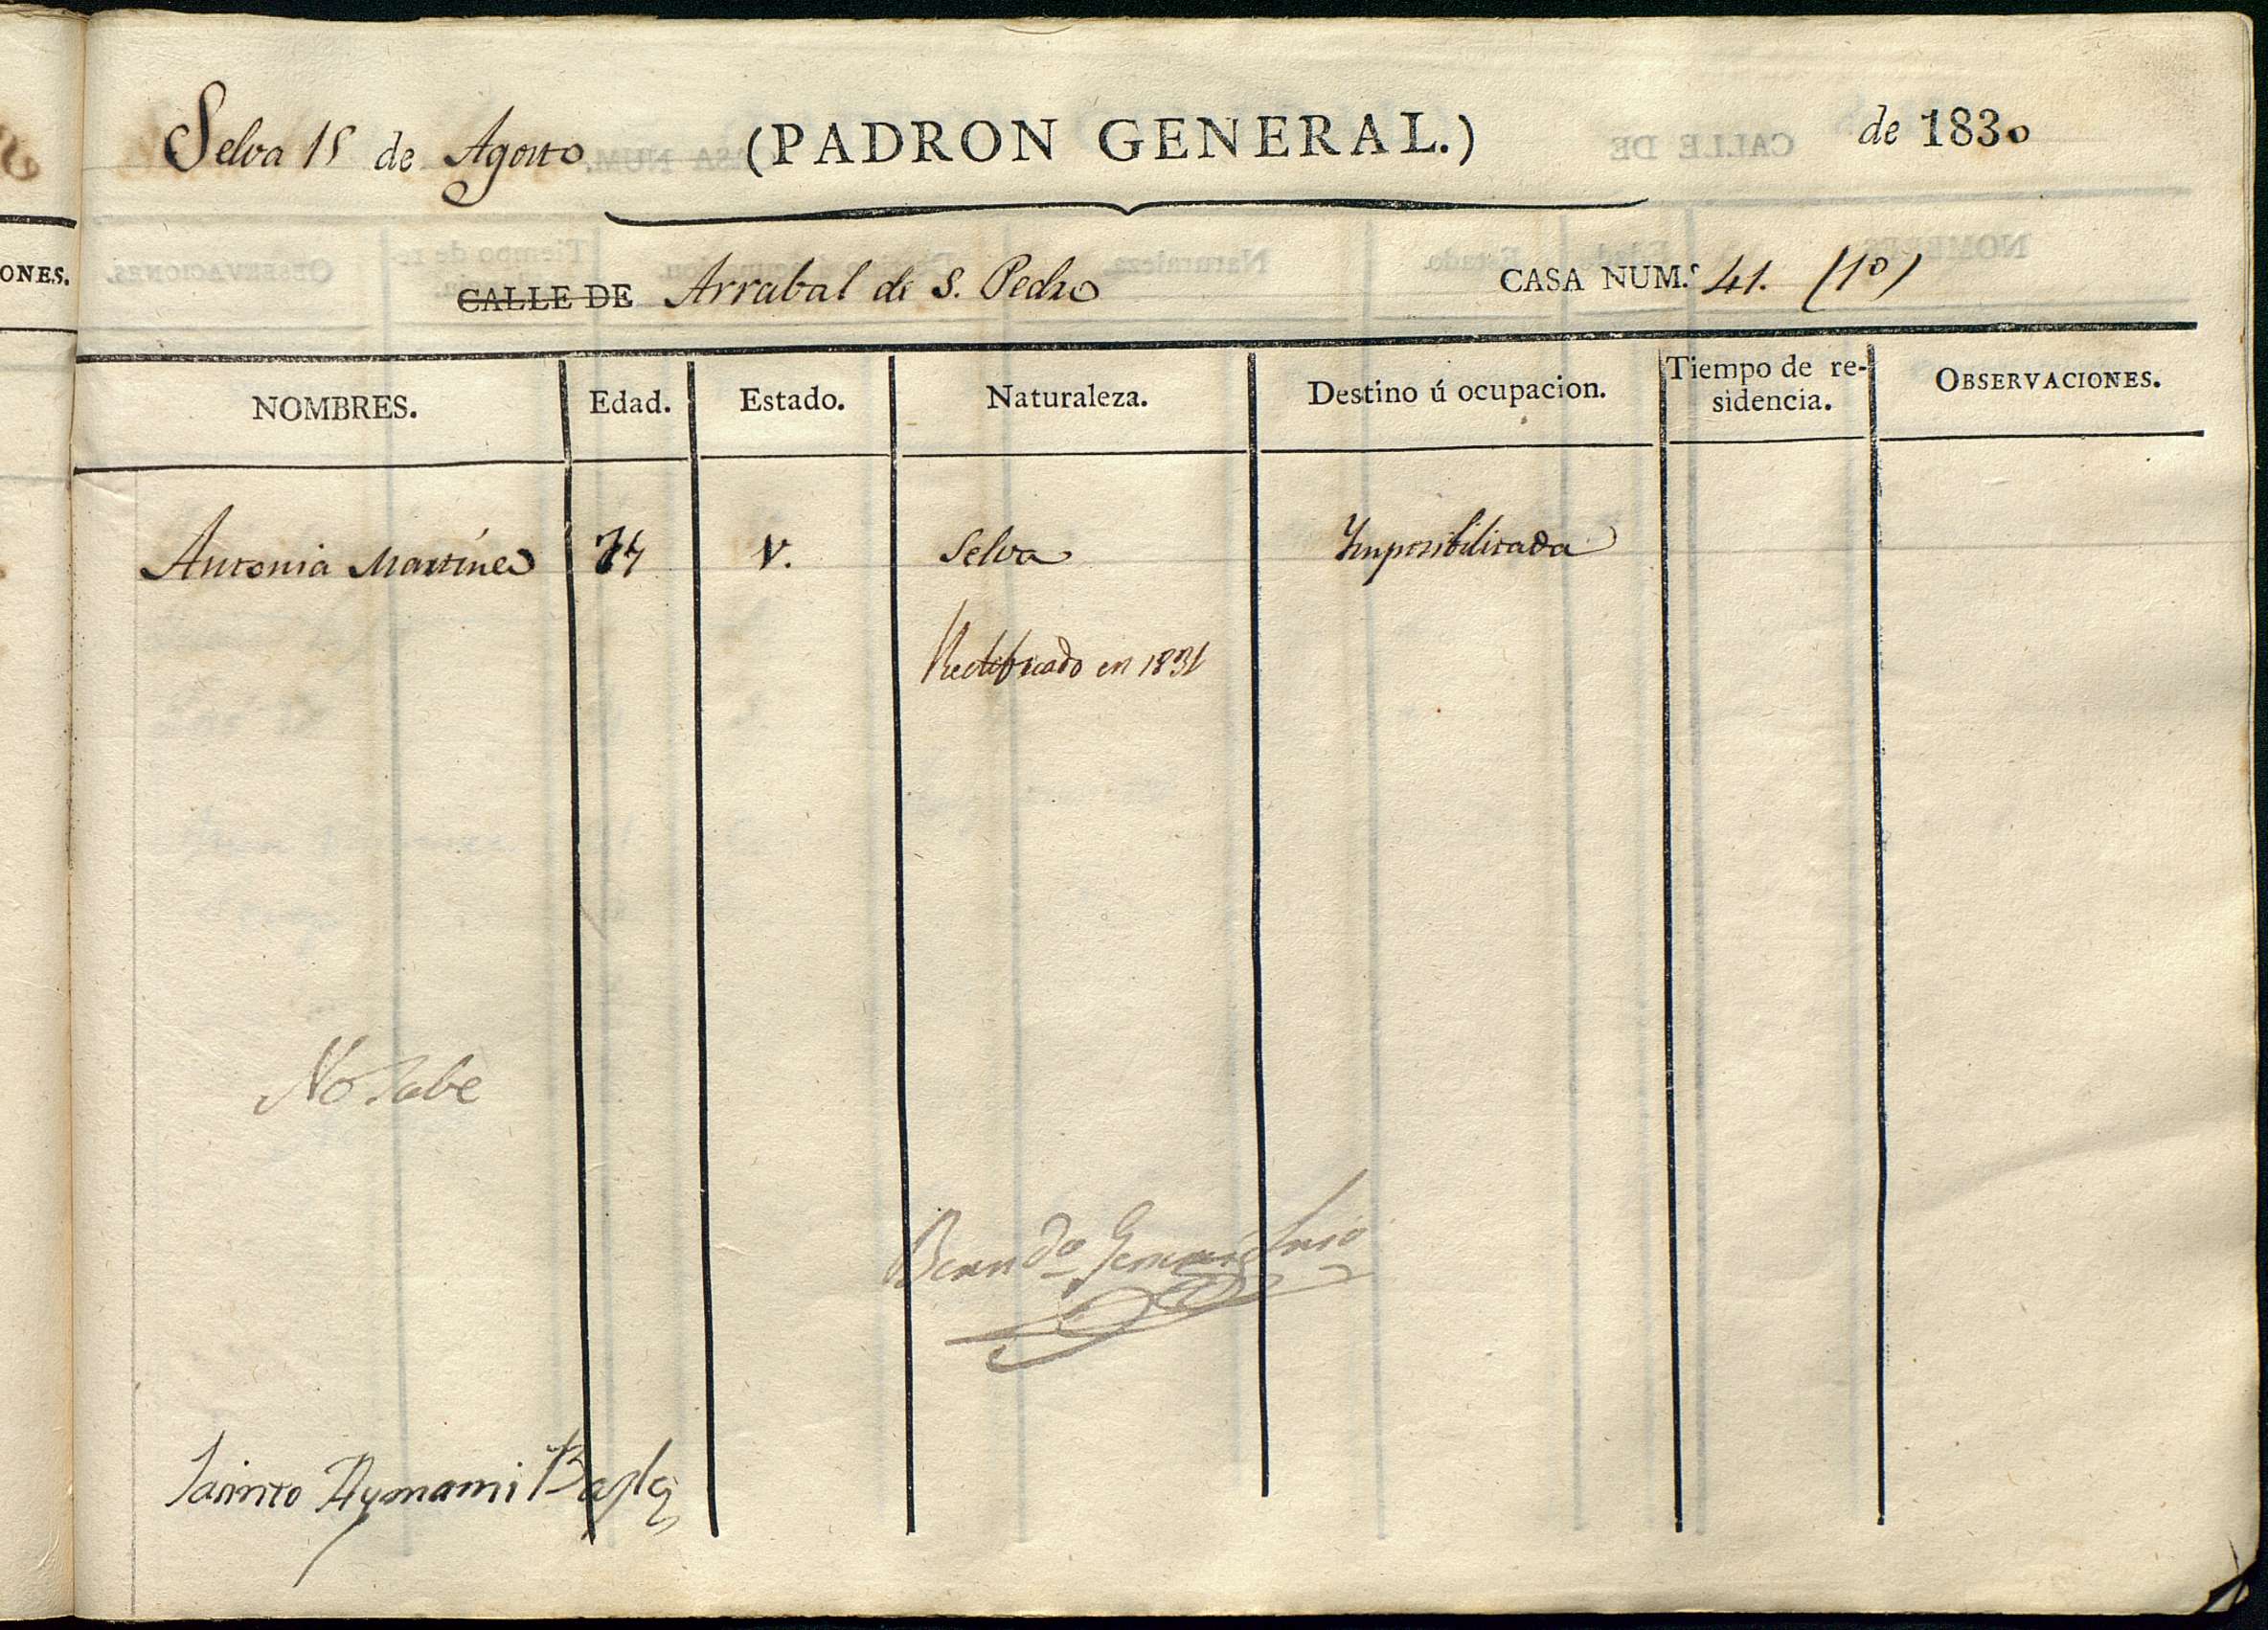 Selva 15 de Agosto (PADRON GENERAL.) de 1830
CALLE DE Arrabal de S. Pedro CASA NUM.º 41. (1º)
ONES.
NOMBRES. Edad. Estado. Naturaleza. Destino ú ocupacion. Tiempo de re-
sidencia. OBSERVACIONES.
Antonia Martínez 74 V. Selva Imposibilitada
Rectificado en 1831
No Sabe
Jacinto Aymami